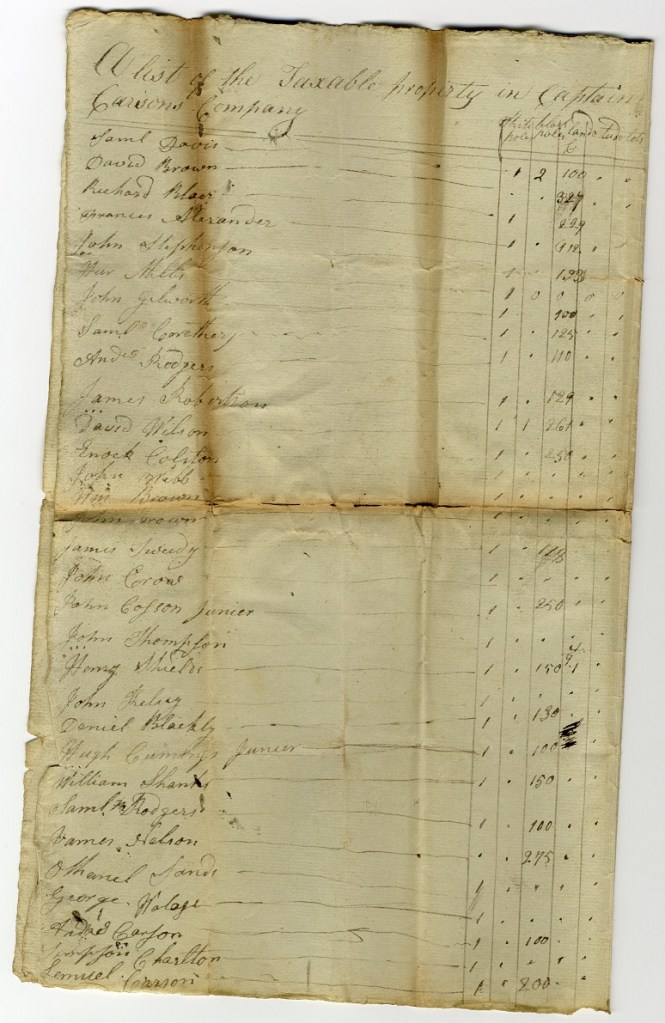 A list of the Taxable property in Captain
Carsons Company
White pole black poles land stud lots
Saml Davis
David Brown 1 2 100 . .
Richard Blair . . 327 . .
Frances Alexander 1 . 229 . .
John Stephenson 1 . 912 . .
Mills 1 . . .
John Gilworth 1 0 0 0 0
Saml 1 . 100 . .
1 . 125 . .
Andw Rodgers 1 . 110 . .
James Robertson 1 . 129 . .
David Wilson 1 1 261 . .
Enock Colston 1 . 250 . .
John 1 . . . .
Wm Brown 1 . . . .
John Brown 1 . . . .
James Tweedy 1 . 118 . .
John Crow 1 . . . .
John Cosson Junier 1 . 250 . .
John Thompson 1 . . . .
Henry Shields 1 . 150 1 .
John Kelsey 1 . . . .
Daniel Blackly 1 . 130 . .
Hugh Cumings Junier 1 . 100 . .
William Shanks 1 . 150 . .
Saml Rodgers
James Nelson 1 . 100 . .
Othaniel Sands . . 275 . .
George Walass 1 . . . .
Andw Carson 1 . . . .
Charlton 1 . 100 . .
Lemuel Carson 1 . . . .
1 . 200 . .